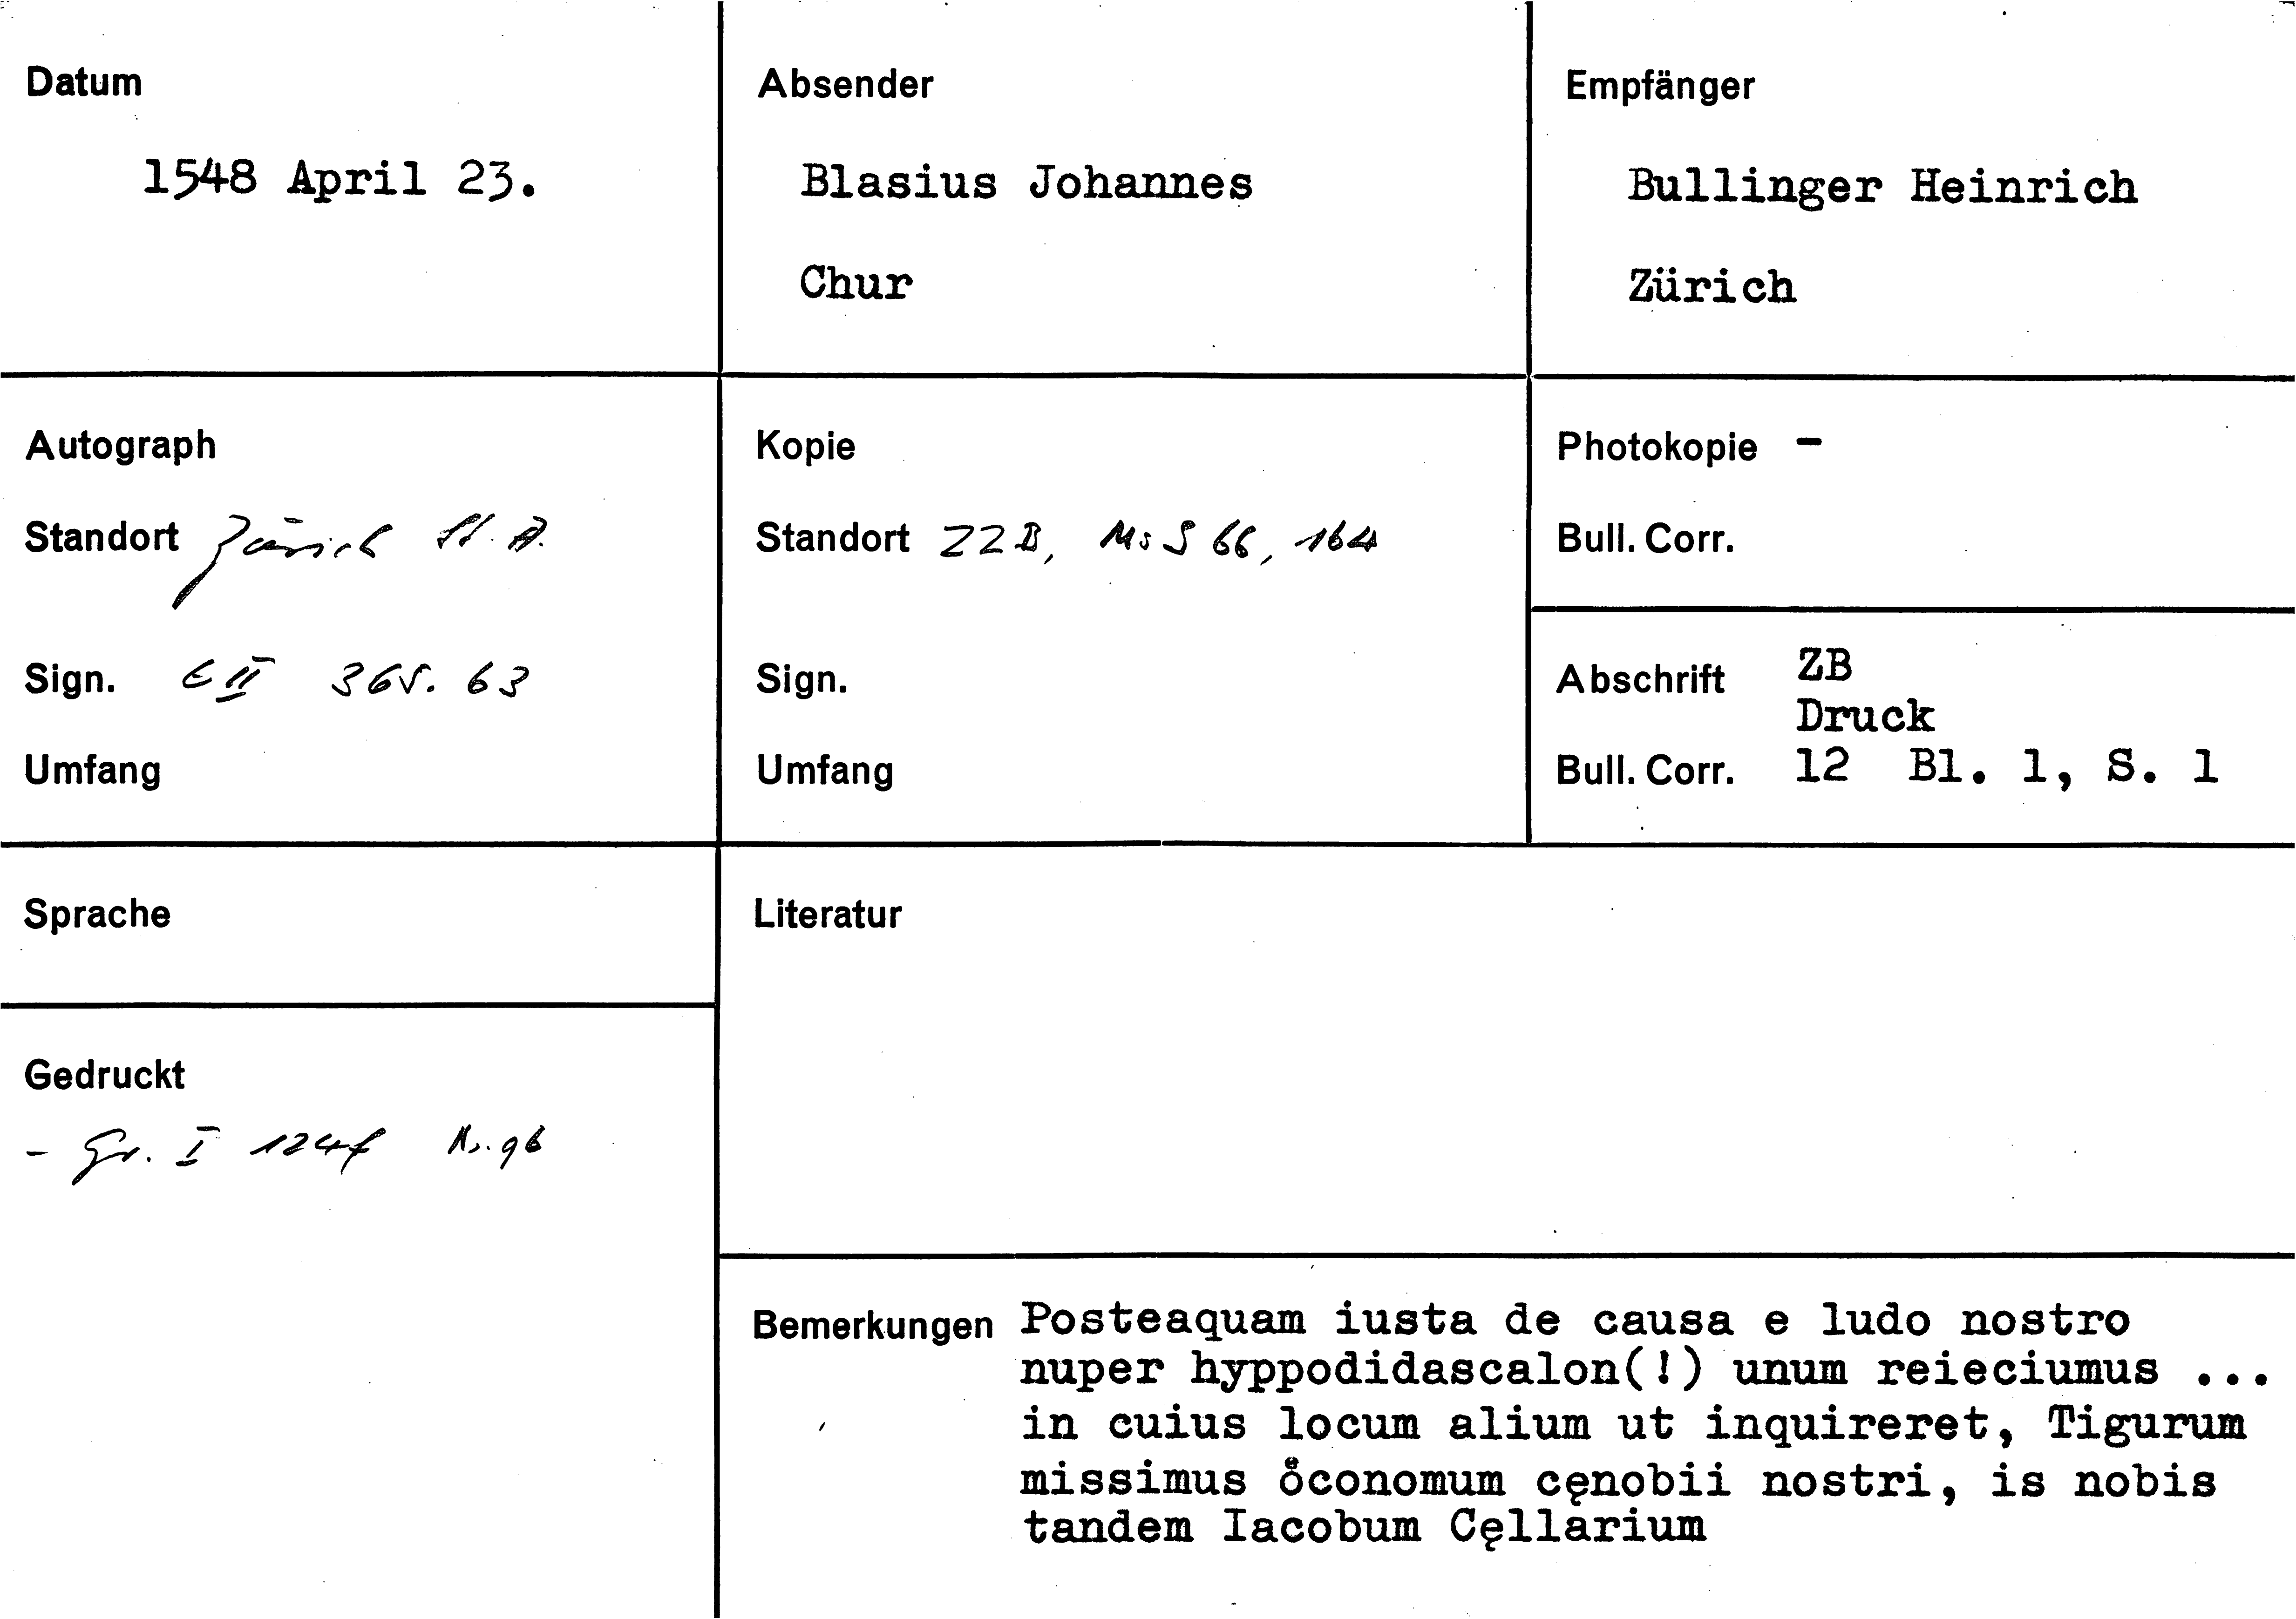 Datum
1548 April 23.
Absender
Blasius Johannes
Chur
Empfänger
Bullinger Heinrich
Zürich
Autograph
Standort Zürich St. A.
Sign. E II 365. 63
Umfang
Kopie
Standort ZZB, Ms S 66, 164
Sign.
Umfang
Photokopie -
Bull. Corr.
Abschrift ZB
Druck
Bull. Corr. 12 Bl. 1, S. 1
Sprache
Gedruckt
- Gr. I 124f Nr. 96
Literatur
Bemerkungen Posteaquam iusta de causa e ludo nostro
nuper hyppodidascalon(!) unum reieciumus ...
in cuius locum alium ut inquireret, Tigurum
missimus o̊conomum cęnobii nostri, is nobis
tandem Iacobum Cęllarium